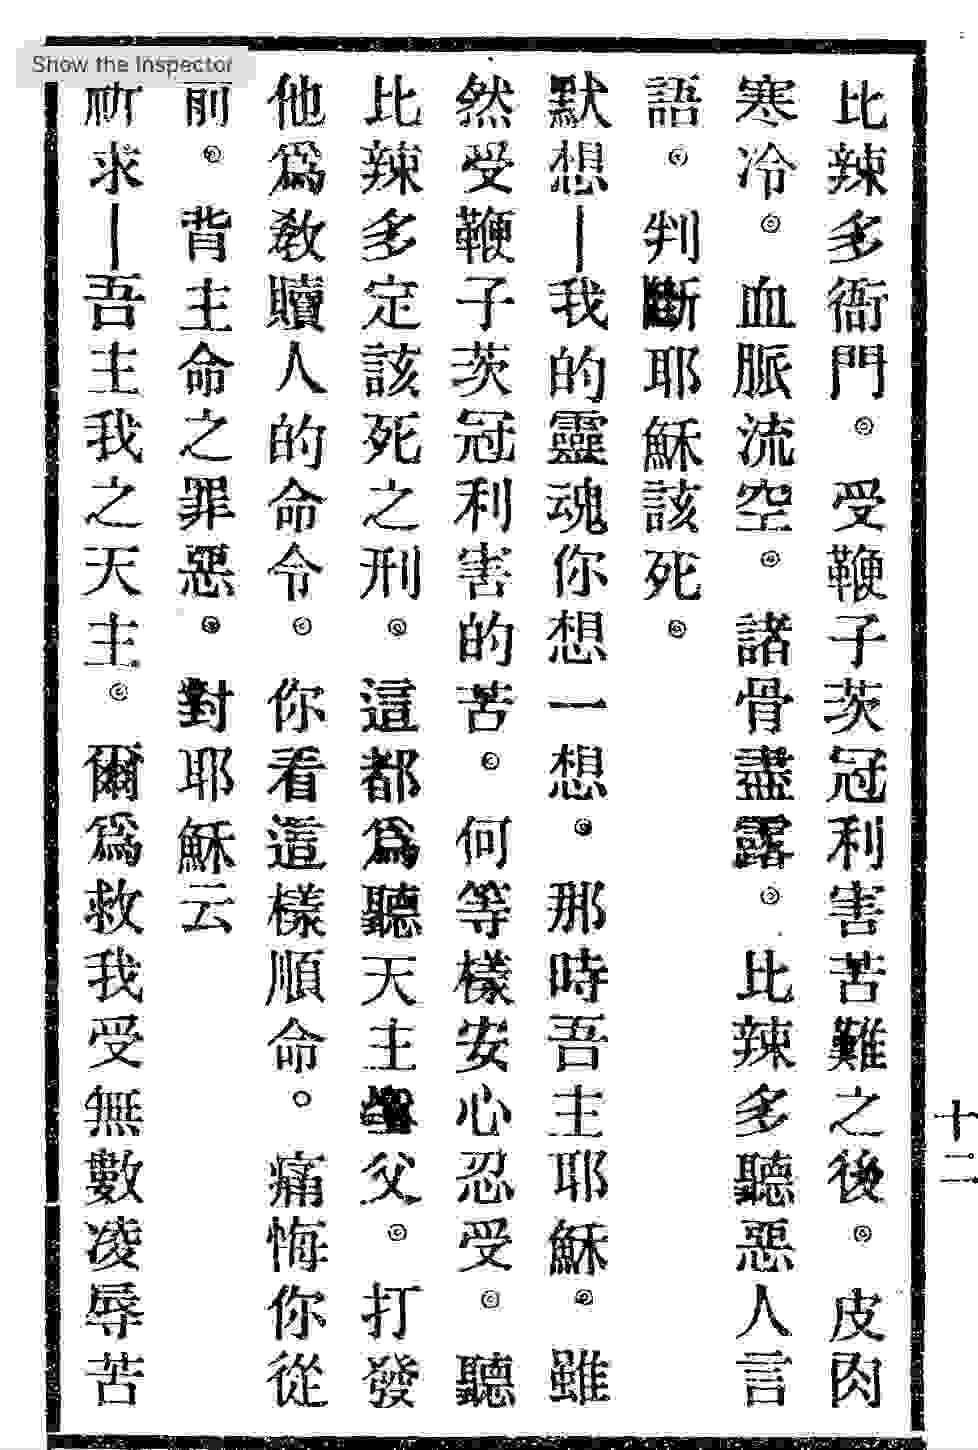 Show the Inspector
十二
比辣多衙門。受鞭子茨冠利害苦難之後。皮肉
寒冷。血脈流空。諸骨盡露。比辣多聽惡人言
語。判斷耶穌該死。
默想|我的靈魂你想一想。那時吾主耶穌。雖
然受鞭子茨冠利害的苦。何等樣安心忍受。聽
比辣多定該死之刑。這都爲聽天主聖父。打發
他爲救贖人的命令。你看這樣順命。痛悔你從
前。背主命之罪惡。對耶穌云
祈求|吾主我之天主。爾爲救我受無數凌辱苦